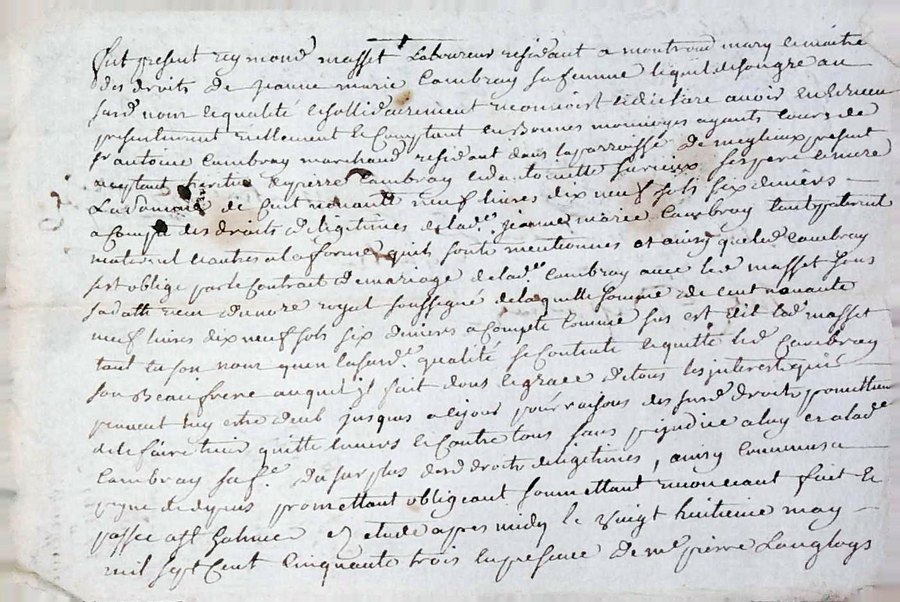 fut present reymond masset Laboureur residant a montroud mary et maitre
des droits de jeanne marie Cambray sa femme lequel de son gre au
surd. nom et qualité et sollidairement reconnoist et declare avoir eu et receu
presentement reellement et Comptant en Bonnes monnoyes ayants Cours de
sr antoine Cambray marchand residant dans la parroisse de meylieux present
acceptant heritier de pierre Cambray et d'antoinette ses pere et mere
La somme de Cent nonante neuf livres dix neuf sols six deniers
a Compte des droits de legitimes de lad.e jeanne marie Cambray tant paternels
maternels et autres a la forme qu'ils sont mentionnes et ainsy que led. Cambray
s'est oblige par le Contrat de mariage de lad.e Cambray avec led. masset sous
sa datte receu du no.re royal soussigné de laquelle somme de cent nonante
neuf livres dix neuf sols six deniers a Compte Comme sus est dit led. masset
tant en son nom qu'en la surd.e qualité se Contente et quitte led. Cambray
son Beaufrere auquel il fait dons et grace de tous les interests qui
peuvent luy estre deub jusques a ce jour pour raisons des surd. droits promettant
de le faire tenir quitte envers et Contre tous sans prejudice a luy et a lad.e
Cambray sa fe. du surplus desd. droits de legitimes, ainsy Convenu a
peyne de depens promettant obligeant soummettant renonceant fait et
passé a st galmier en etude apres midy le vingt huitieme may
mil sept Cent Cinquante trois en presence de me pierre Langloys